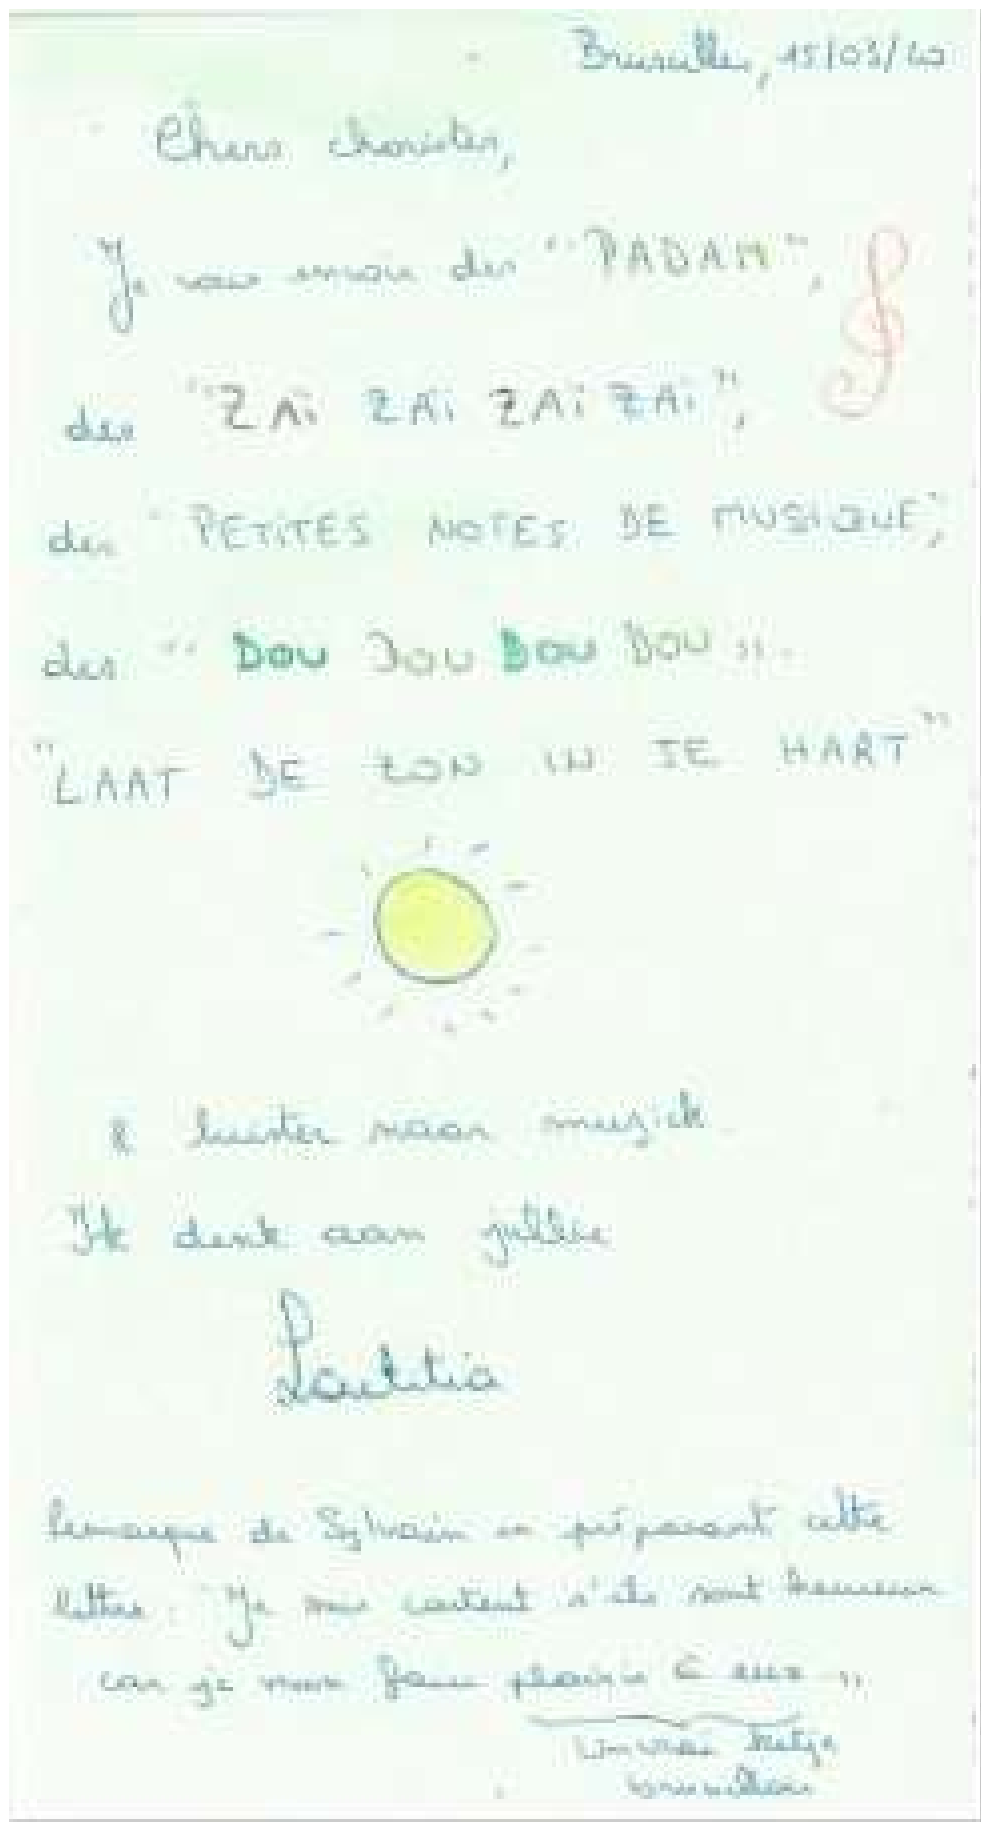 Bruxelles, 15/05/20
Chers choristes,
Je vous envoie des "PADAM",
des "ZAÏ ZAÏ ZAÏ ZAÏ",
des "PETITES NOTES DE MUSIQUE",
des "DOU DOU DOU DOU".
"LAAT DE ZON IN JE HART"
& luister naar muziek
Ik denk aan jullie
Laetitia
Remarque de Sylvain en préparant cette
lettre : "Je suis content s'ils sont heureux
car je veux faire plaisir à eux"
Un vrai ketje
bruxellois